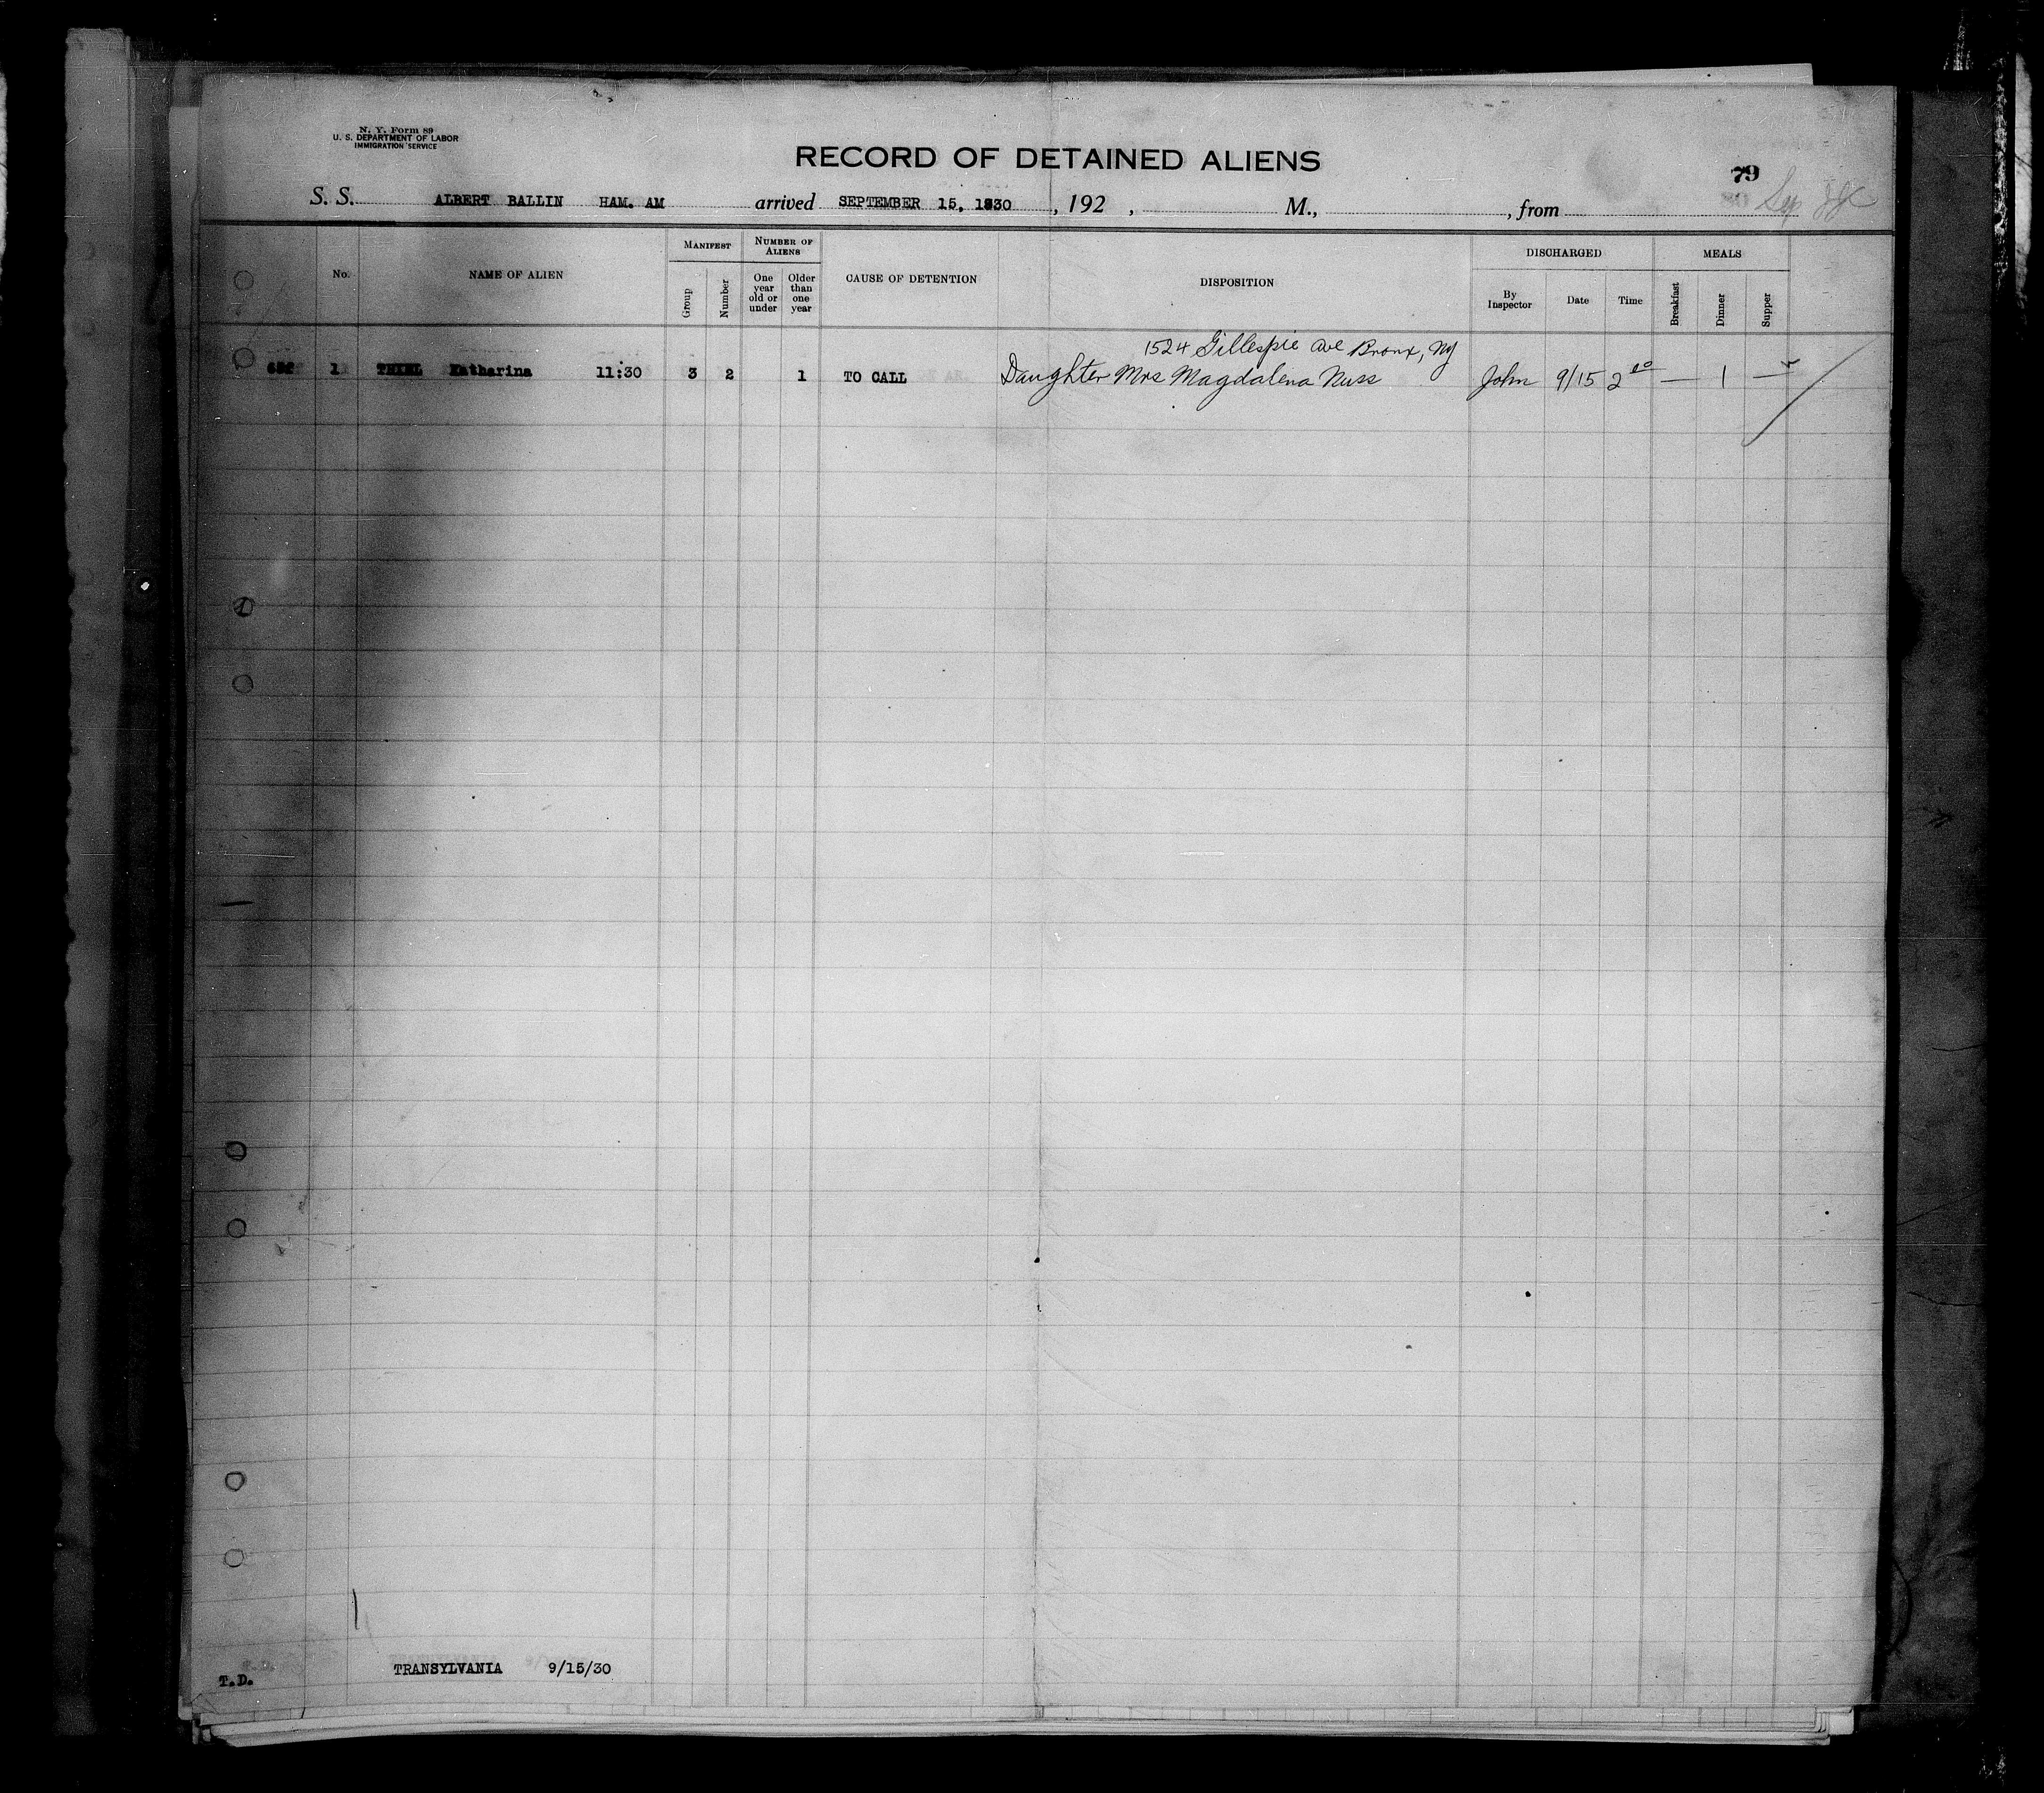 N. Y. Form 89
U. S. DEPARTMENT OF LABOR
IMMIGRATION SERVICE
RECORD OF DETAINED ALIENS
79
S. S. ALBERT BALLIN HAM. AM arrived SEPTEMBER 15, 1930 , 192 , M., , from
No.
NAME OF ALIEN
MANIFEST
Group
Number
NUMBER OF ALIENS
One year old or under
Older than one year
CAUSE OF DETENTION
DISPOSITION
DISCHARGED
By Inspector
Date
Time
MEALS
Breakfast
Dinner
Supper
1524 Gillespie Ave Bronx, NY
1 THIEL Katharina 11:30 3 2 1 TO CALL Daughter Mrs Magdalena Nuss John 9/15 2 — 1 —
TRANSYLVANIA 9/15/30
T.D.